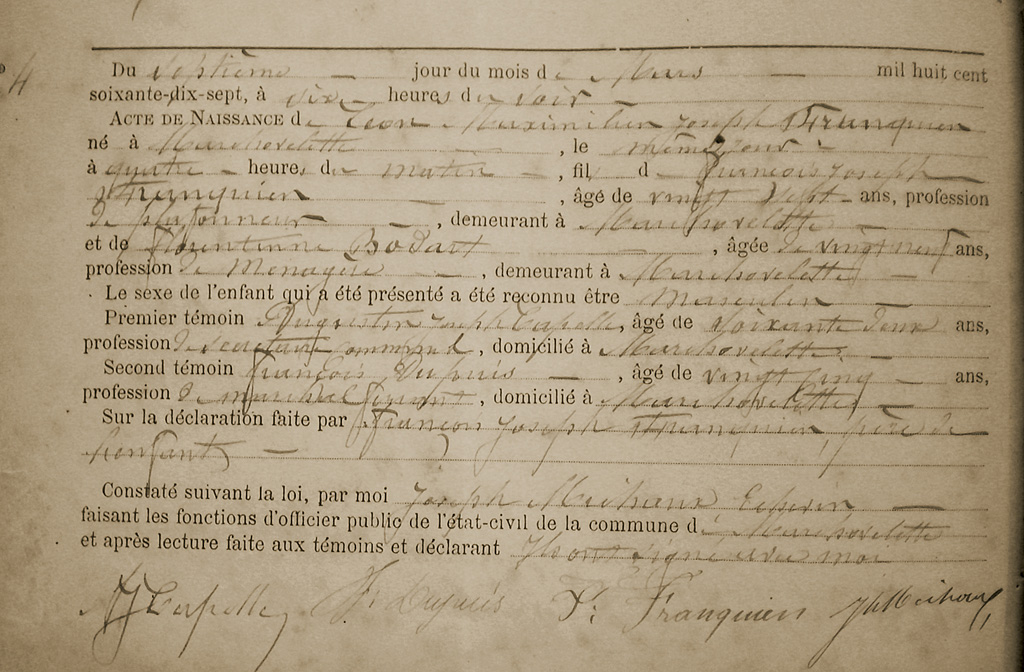 4
Du septième jour du mois de Mars mil huit cent
soixante-dix-sept, à six heures du soir
ACTE DE NAISSANCE de Léon Maximilien Joseph Franquien
né à Marchovelette, le même jour
à quatre heures du matin, fils de François Joseph
Franquien, âgé de vingt sept ans, profession
de plafonneur, demeurant à Marchovelette
et de Florentinne Bodart, âgée de vingt neuf ans,
profession de Menagère, demeurant à Marchovelette
Le sexe de l'enfant qui a été présenté a été reconnu être Masculin
Premier témoin Augustin Joseph Capelle, âgé de soixante deux ans,
profession de secrétaire communal, domicilié à Marchovelette
Second témoin François Dupuis, âgé de vingt cinq ans,
profession de maréchal ferrant, domicilié à Marchovelette
Sur la déclaration faite par François Joseph Franquien, père de
l'enfant
Constaté suivant la loi, par moi Joseph Echevin
faisant les fonctions d'officier public de l'état-civil de la commune de Marchovelette
et après lecture faite aux témoins et déclarant Ils ont signé avec moi
AJ Capelle F. Dupuis F. Franquien